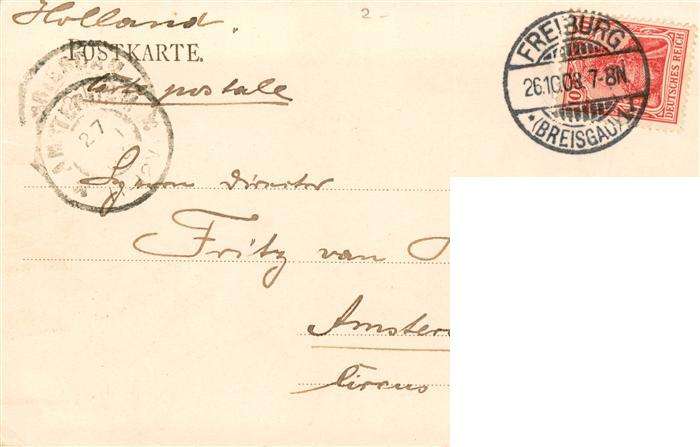 Holland.
2-
POSTKARTE.
Carte postale
FREIBURG
26.10.03.7-8N
*(BREISGAU)
DEUTSCHES REICH
10
AMSTERDAM
27
director
Fritz van
Amster
Circus